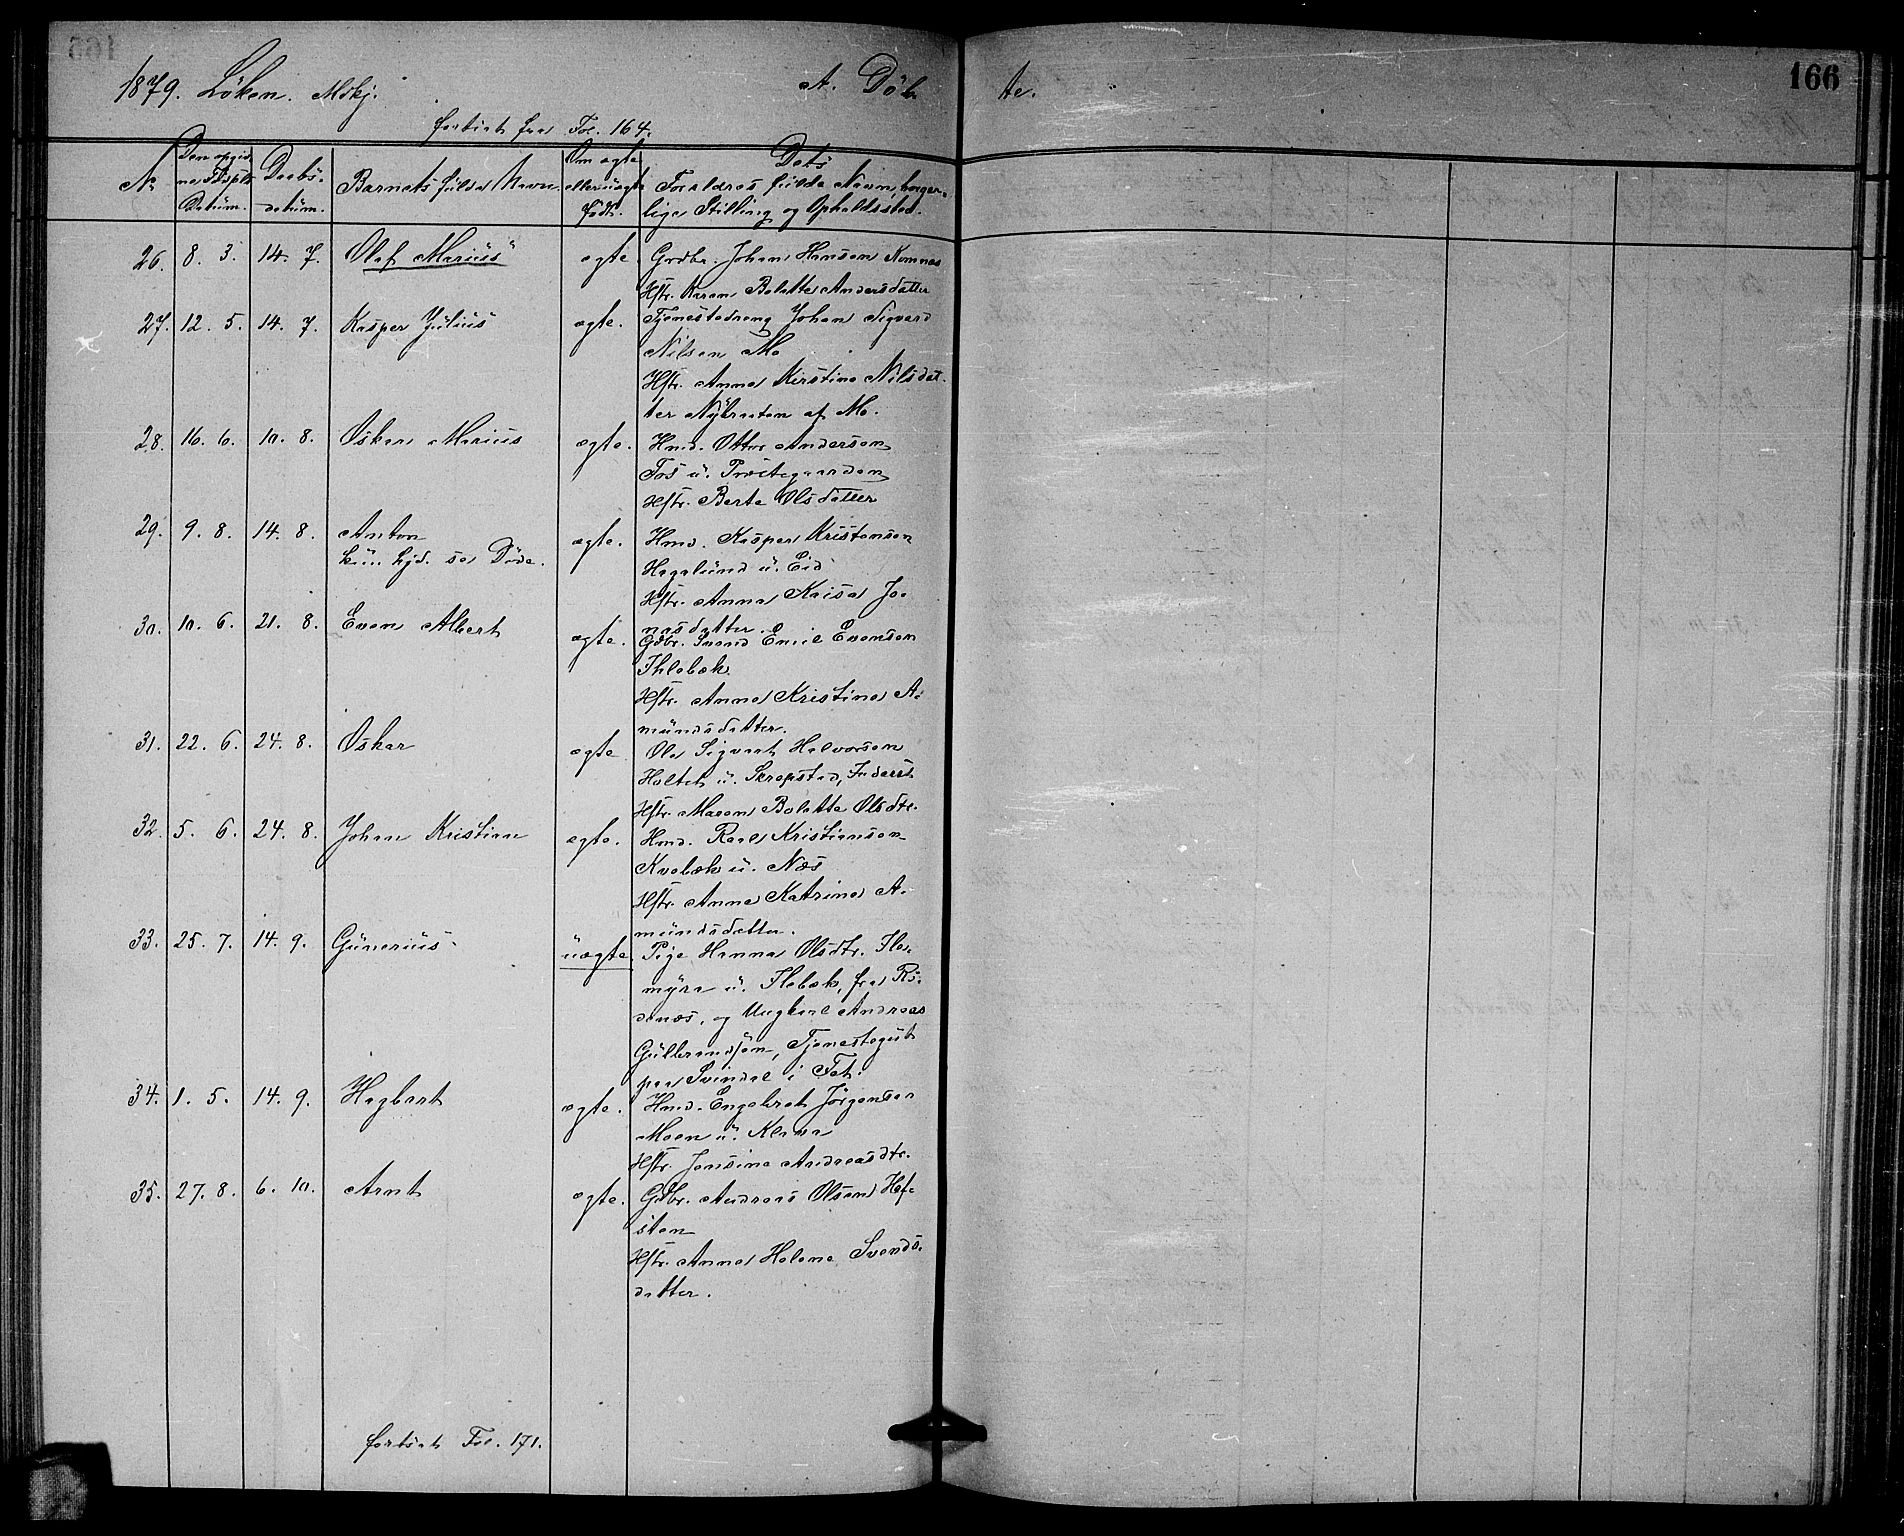 166
1879. Löken. Mskj. A. Döb te.
fortsat fra Fol. 164.
No. Den opgivne Födsels Datum. Daabsdatum. Barnets fulde Navn Om ægte eller uægte födt. Dets Forældres fulde Navn, borgerlige Stilling og Opholdssted.
26. 8. 3. 14. 7. Olaf Marius ægte Grdbr. Johan Hansen Komnæs
Hstr. Karen Bolette Andersdatter
27. 12. 5. 14. 7. Kasper Julius ægte. Tjenestedreng Johan Sigvard
Nilsen Mo
Hstr. Anne Kirstine Nilsdat-
ter Nybraaten af Mo.
28. 16. 6. 10. 8. Oskar Marius ægte. Hmd. Otter Andersen
Fos u. Præstegaarden
Hstr. Berte Olsdatter
29. 9. 8. 14. 8. Anton ægte. Hmd. Kasper Kristensen
kun hjd. se Döde. Hagalund u. Eid
Hstr. Anna Kaisa Jo-
nasdatter.
30. 10. 6. 21. 8. Even Albert ægte. Gdbr. Svend Emil Evensen
Ihlebæk
Hstr. Anne Kristine A-
mundsdatter.
31. 22. 6. 24. 8. Oskar ægte Ole Sigvart Halvorsen
Holtet u. Krepstad, Inderst
Hstr. Maren Bolette Olsdtr.
32. 5. 6. 24. 8. Johan Kristian ægte. Hmd. Karl Kristiansen
Kvebæk u. Næs
Hstr. Anne Katrine A-
mundsdatter.
33. 25. 7. 14. 9. Gunerius uægte Pige Hanna Olsdtr. Fle-
myra u. Ilebæk, fra Rö-
denæs, og Ungkarl Andreas
Gulbrandsen, Tjenestegut
paa Svindal i Fet.
34. 1. 5. 14. 9. Hagbart ægte. Hmd. Engebret Jörgensen
Moen u. Kleva
Hstr. Jensine Andreasdtr.
35. 27. 8. 6. 10. Arnt ægte. Gdbr. Andreas Olsen Haf-
sten
Hstr. Anne Helene Svends-
datter.
fortsat Fol. 171.